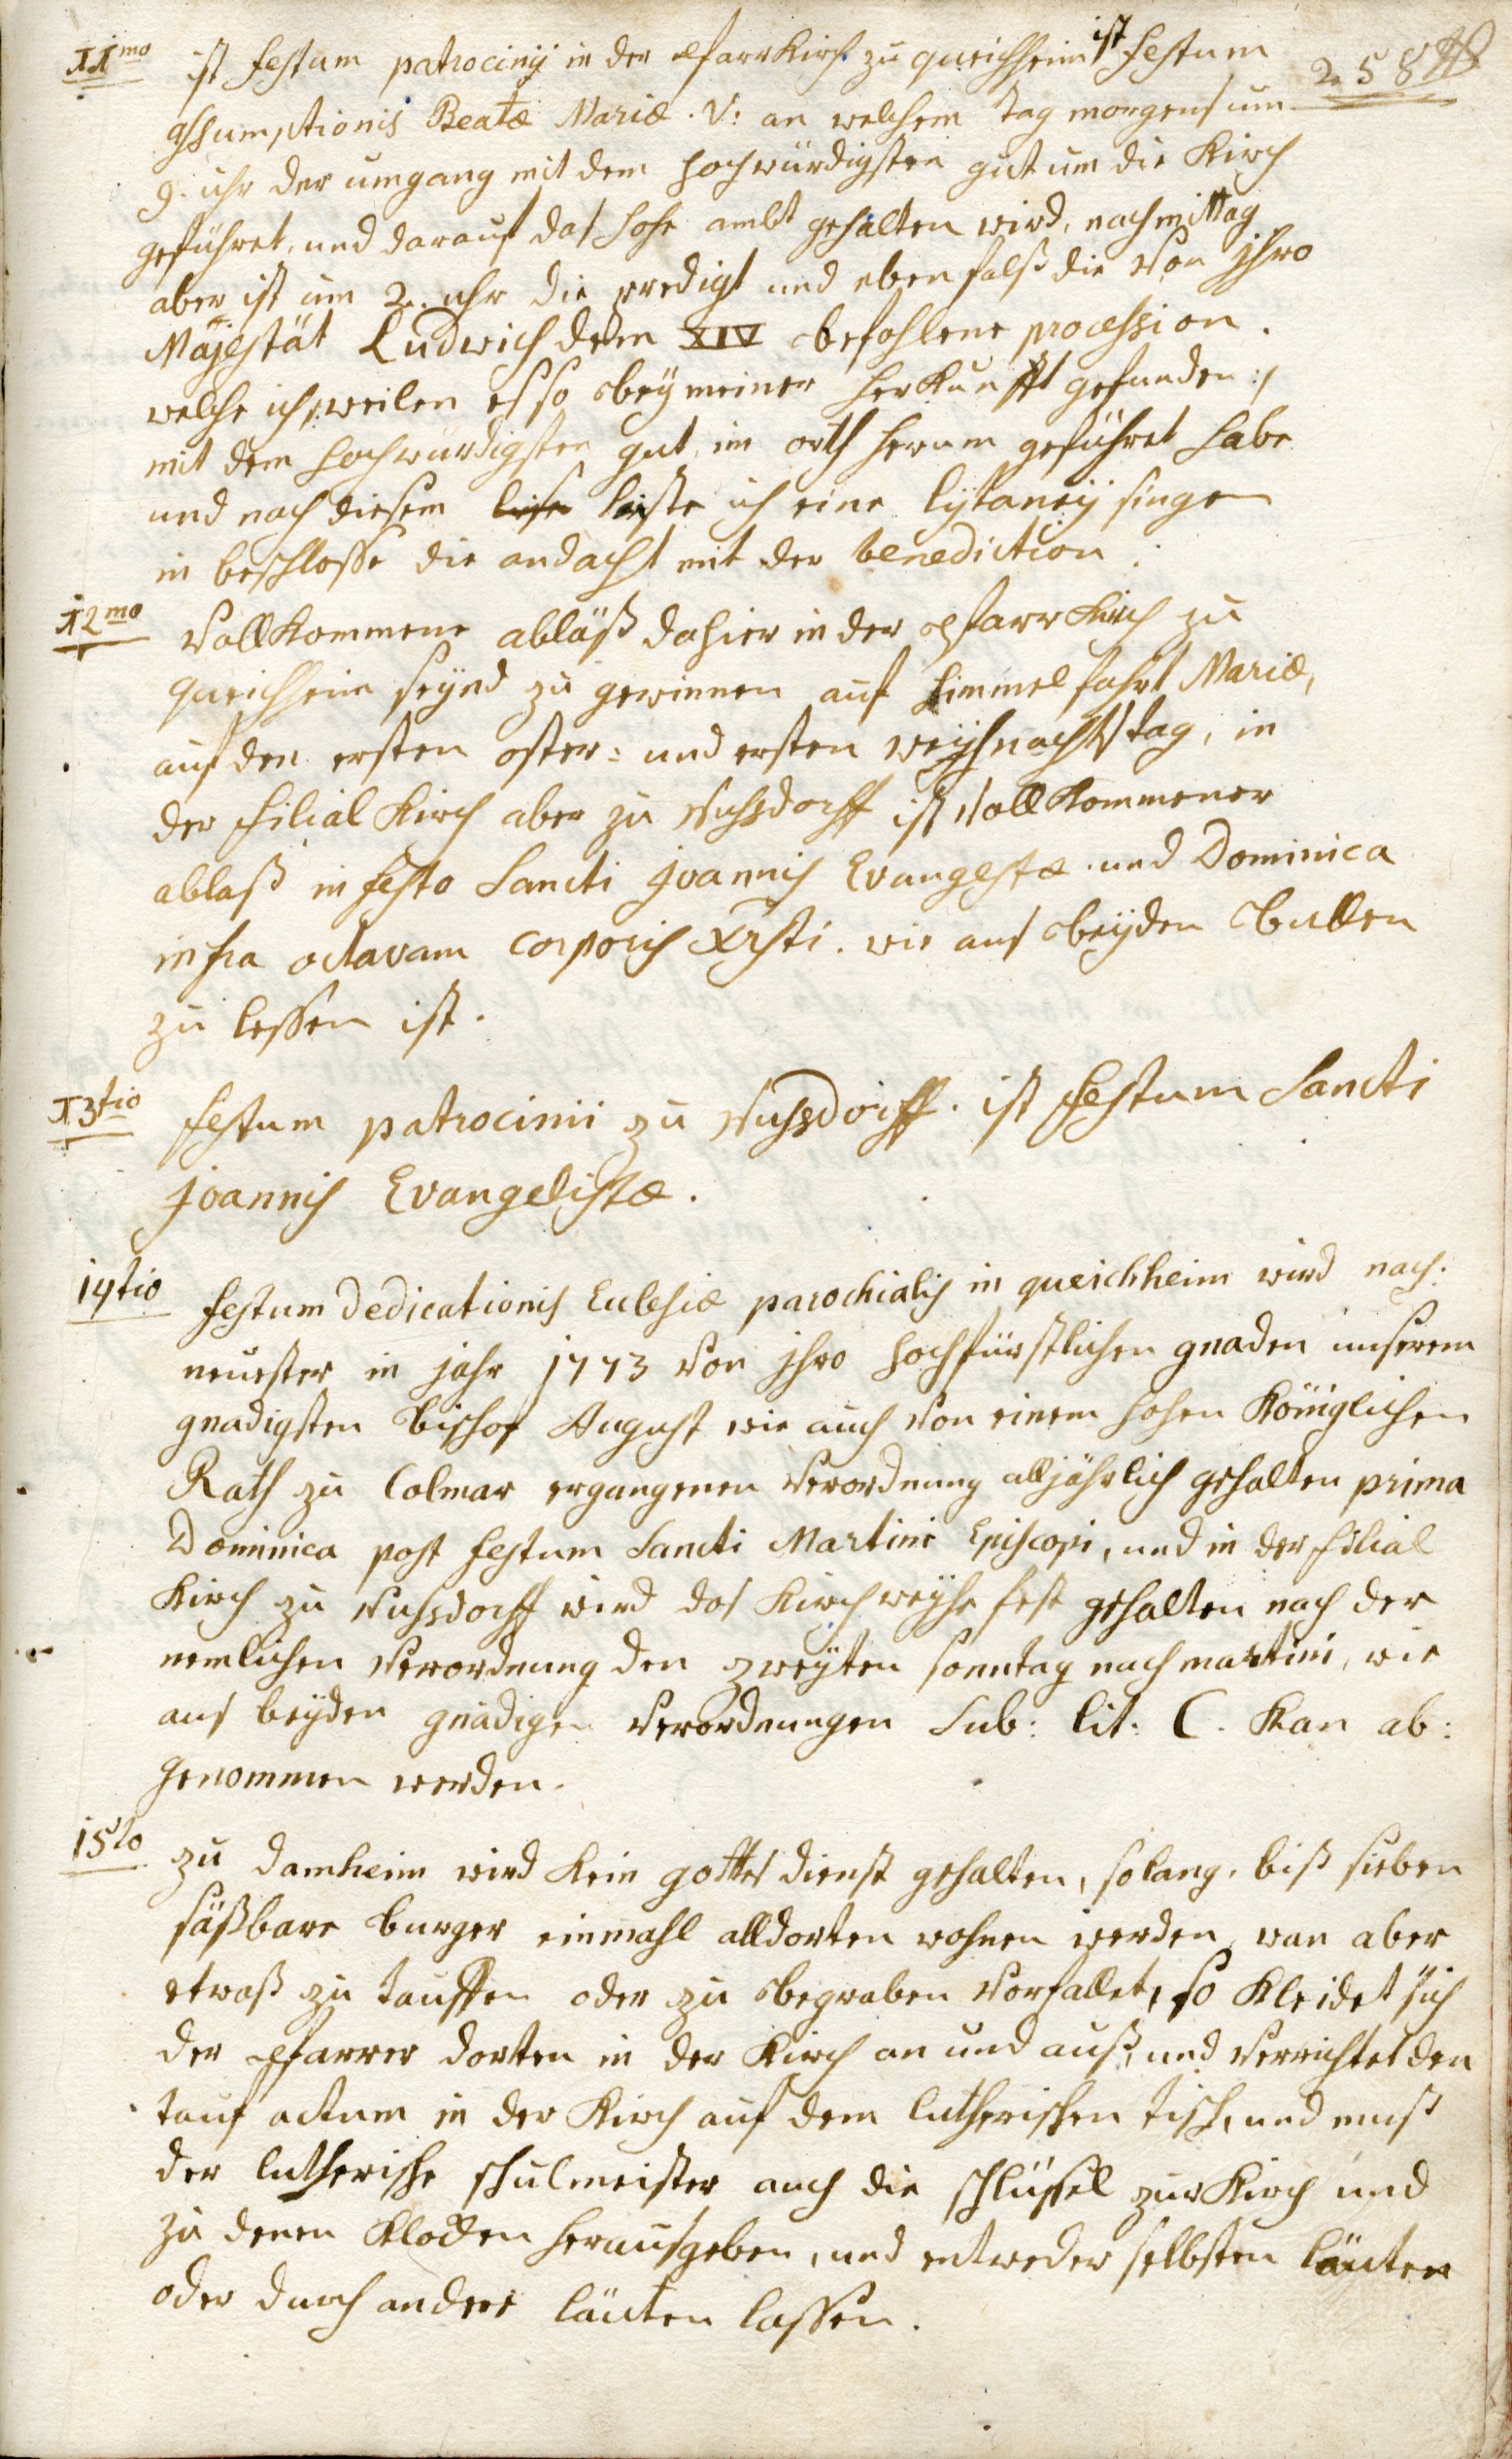 258
11mo ist festum patrocinij in der pfarr Kirch zu queichheim ist festum
assumptionis Beatæ Mariæ. V: an welchem tag morgens um
9. uhr der umgang mit dem hochwürdigsten gut um die Kirch
geführet, und darauf das hohe ambt gehalten wird, nachmittag
aber ist um 2. uhr die predigt und ebenfalß die von jhro
Majestät Ludwich dem XIV befohlene procession.
welche ich /: weilen es so bey meiner herkunfft gefunden :/
mit dem hochwürdigsten gut im orth herum geführet habe
und nach diesem ließe ich eine lytaney singen
in beschlosse die andacht mit der benediction.
12mo Vollkommene abläß dahier in der pfarr Kirch zu
queichheim seynd zu gewinnen auf Himmelfahrt Mariæ,
auf den ersten oster= und ersten weyhnachtstag, in
der filial Kirch aber zu Nussdorff ist vollkommener
ablaß in festo Sancti joannis Evangestæ und Dominica
infra octavam corporis Xristi. wie aus beyden Bullen
zu lessen ist.
13tio festum patrocinii zu Nussdorff. ist festum Sancti
joannis Evangelistæ.
14tio festum Dedicationis Eclesiæ parochialis in queichheim wird nach
neuester in jahr 1773 von jhro hochfürstlichen gnaden unserem
gnädigsten Bischof August wie auch von einem hohen Königlichen
Rath zu Colmar ergangenen Verordnung alljährlich gehalten prima
Dominica post festum Sancti Martini Episcopi, und in der filial
Kirch zu Nussdorff wird das Kirchweyhe fest gehalten nach der
nemlichen Verordnung den zweyten sonntag nach martini, wie
aus beyden gnädigen Verordnungen Sub: lit: C. Kan ab:
genommen werden.
15to zu Damheim wird Kein gottes dienst gehalten, so lang, biß sieben
säßbare burger einmahl alldorten wohnen werden, wan aber
etwaß zu tauffen oder zu begraben vorfallet, so Kleidet sich
der pfarrer dorten in der Kirch an und auß, und verrichtet den
tauf actum in der Kirch auf dem lutherischen tisch, und muß
der lutherische schulmeister auch die schlüssel zur Kirch und
zu denen Kloken herausgeben, und entweder selbsten läuten
oder durch andere läuten lassen.